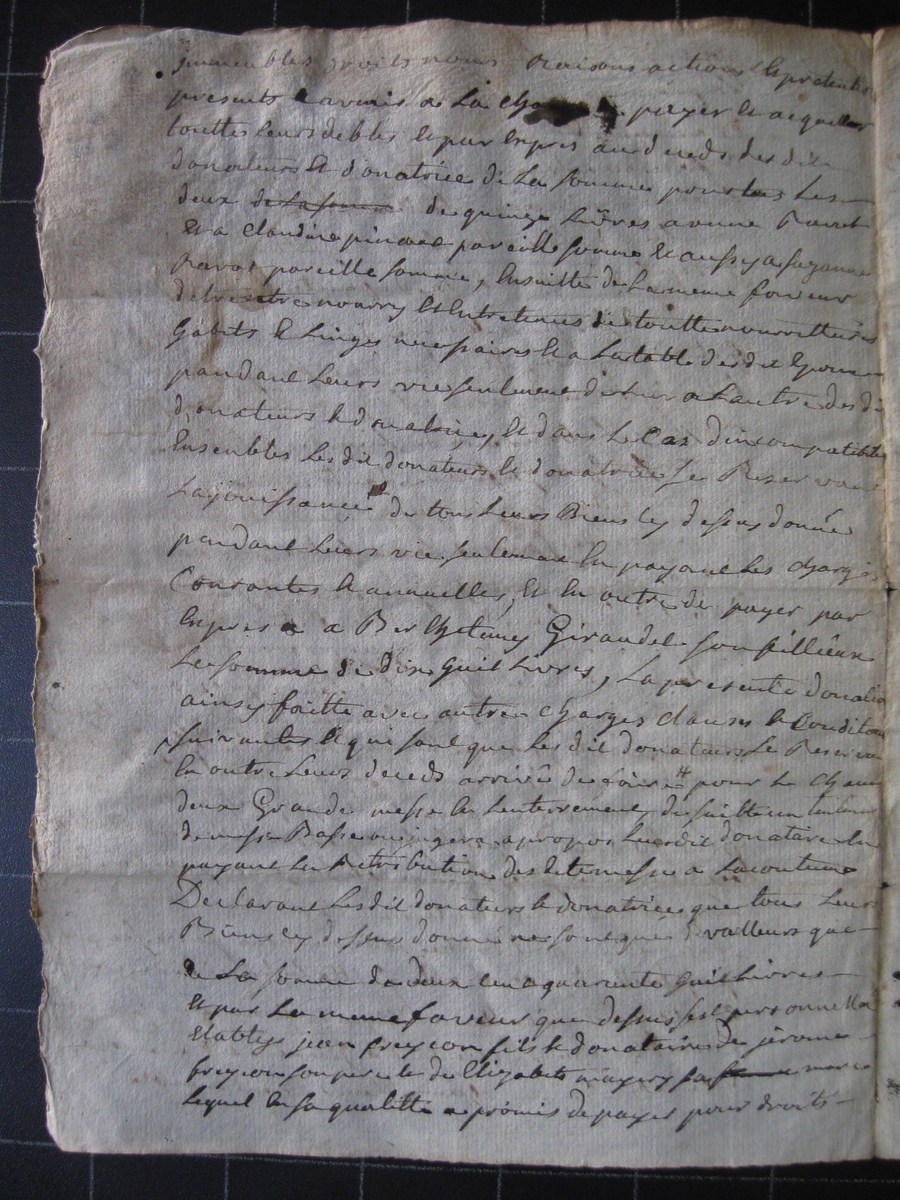 immeubles droits noms raisons actions & pretentio
presents & avenir a La charge de payer et acquitter
touttes leurs debtes et par Expres au deceds des dit
donateurs et donatrice de La somme pour tous Les
deux de La somme de quinze Livres a
et a Claudine pareille somme et aussy a Suzanne
Ravat pareille somme, Ensuitte de La meme faveur
detre nourry et Entretenus de toutte nourritture
habits & Linges necessaires et a La table des dit Epoux
pandant Leurs vie seulement de Lun a Lautre des d
donateurs & donatrices, et dans Le Cas dincompatibilite
Ensembles Les dit donateurs & donatrice se Reservent
La jouissance de tous Leurs Biens cy dessus donnés
pendant Leurs vie seulement En payant Les charges
Courantes & annuelles, et En outre de payer par
Expres a Berthelemy Giraudet son fillieux
La somme de dix huit Livres, La presente donation
ainsy faitte avec autres charges clauses & Condition
suivantes et qui sont que Les dit donateurs se Reservent
En outre Leurs deceds arrivé de faire pour & chacun
deux Grande messe En Lenterrement, de suitte un
de messe Basse jugera a propos Les dit donataire En
payant La Retribution des dite messe a Lacoutume
Declarant Les dit donateurs & donatrices que tous Leurs
Biens cy dessus donné ne sont que valleurs que
de La somme de deux cent quarante huit Livres
et par La meme faveur que dessus sest personnellem
Etablys jean freycon fils & donataires de jerome
freycon son pere & de Elizabets sa mere
Lequel En sa qualitte a promis de payer pour droits